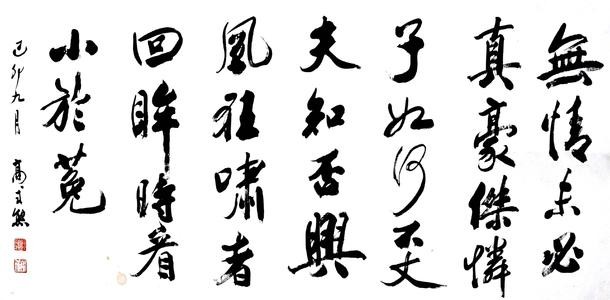 無情未必
真豪傑憐
子如何不丈
夫知否興
風狂嘯者
回眸時看
小於菟
己卯九月 高式熊